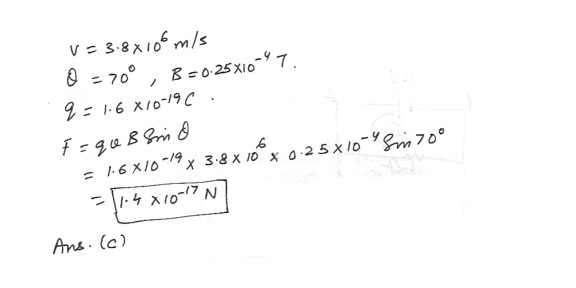 V = 3.8 x 10⁶ m/s
θ = 70° , B = 0.25 x 10⁻⁴ T.
q = 1.6 x 10⁻¹⁹ C .
F = q v B Sin θ
= 1.6 x 10⁻¹⁹ x 3.8 x 10⁶ x 0.25 x 10⁻⁴ Sin 70°
= 1.4 x 10⁻¹⁷ N
Ans. (c)